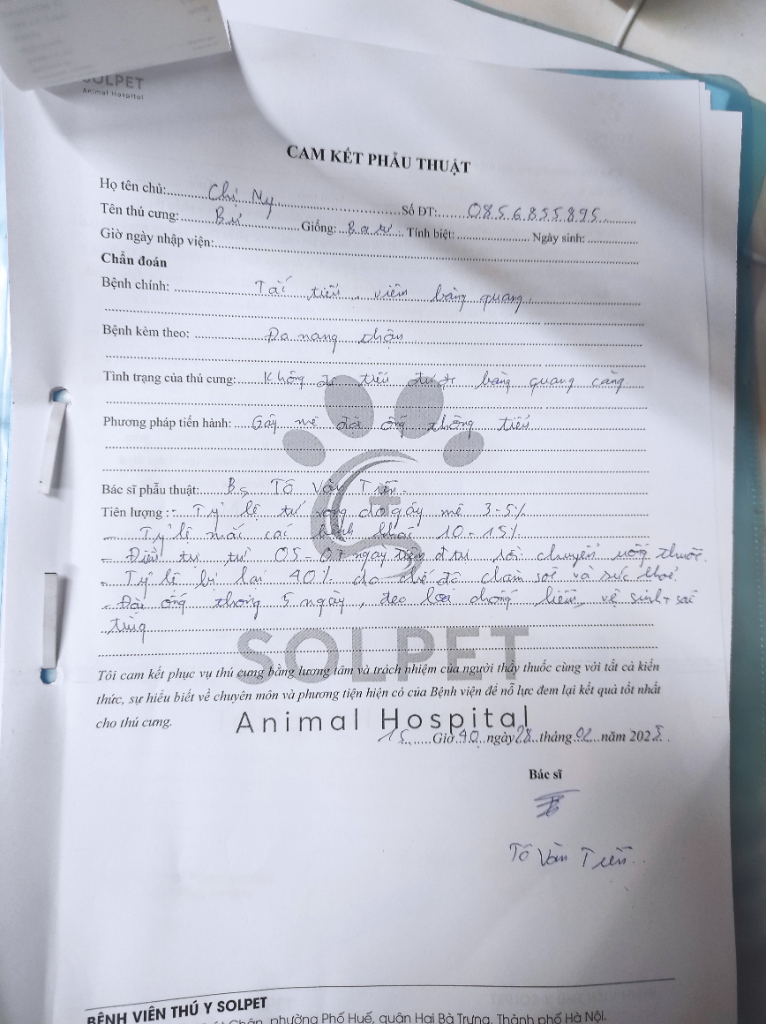 SOLPET
Animal Hospital
CAM KẾT PHẪU THUẬT
Họ tên chủ: Chị Ny Số ĐT: 0856855895
Tên thú cưng: Bư Giống: Ba tư Tính biệt: Ngày sinh:
Giờ ngày nhập viện:
Chẩn đoán
Bệnh chính: Tắc tiểu, viêm bàng quang
Bệnh kèm theo: Đa nang thận
Tình trạng của thú cưng: Không đi tiểu được bàng quang căng
Phương pháp tiến hành: Gây mê đặt ống thông tiểu
Bác sĩ phẫu thuật: Bs Tô Văn Tiến
Tiên lượng: - Tỷ lệ tử vong do gây mê 3-5%
- Tỷ lệ mắc các bệnh khác 10-15%
- Điều trị từ 05-07 ngày tiêm đ trị rồi chuyển uống thuốc.
- Tỷ lệ bị lại 40% do chế độ chăm sóc và sức khoẻ.
- Đặt ống thông 5 ngày, đeo loa chống liếm, vệ sinh + sát
trùng
SOLPET
Tôi cam kết phục vụ thú cưng bằng lương tâm và trách nhiệm của người thầy thuốc cùng với tất cả kiến
thức, sự hiểu biết về chuyên môn và phương tiện hiện có của Bệnh viện để nỗ lực đem lại kết quả tốt nhất
cho thú cưng.
Animal Hospital
15 Giờ 40 ngày 28 tháng 02 năm 2023.
Bác sĩ
Tô Văn Tiến
BỆNH VIỆN THÚ Y SOLPET
phường Phố Huế, quận Hai Bà Trưng, Thành phố Hà Nội.